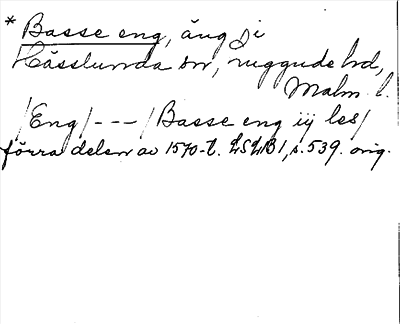 * Basse eng, äng ji
Hässlunda sn, Luggude hd,
Malm. l.
/Eng/---/Basse eng iij les/
förra delen av 1570-t. LSLB1, s. 539. orig.